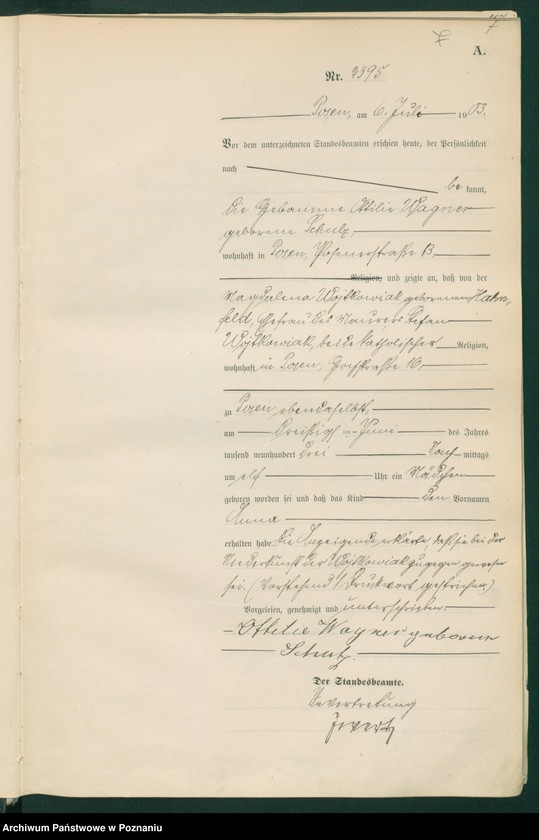 A.
Nr. 2395
Posen, am 6. Juli 1903.
Vor dem unterzeichneten Standesbeamten erschien heute, der Persönlichkeit
nach
be kannt,
die Hebamme Ottilie Wagner
geborene Schulz,
wohnhaft in Posen, Posenerstraße 13,
Religion, und zeigte an, daß von der
Magdalena Wojtkowiak geborenen Hahn-
feld, Ehefrau des Maurers Stefan
Wojtkowiak, beide katholischer Religion,
wohnhaft in Posen, 10,
zu Posen ebendaselbst,
am dreißigsten Juni des Jahres
tausend neunhundert drei Nach mittags
um elf Uhr ein Mädchen
geboren worden sei und daß das Kind den Vornamen
Anna
erhalten habe. Die Anzeigende erklärte, daß sie bei der
Niederkunft der Wojtkowiak zugegen gewesen
sei. (Vorstehend 1 Druckwort gestrichen.)
Vorgelesen, genehmigt und unterschrieben.
Ottilie Wagner geborene
Schulz.
Der Standesbeamte.
In Vertretung
Archiwum Państwowe w Poznaniu